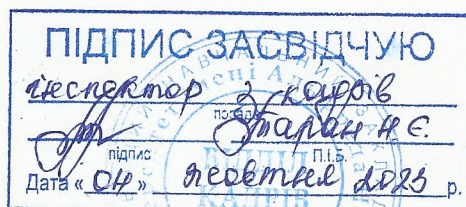 ПІДПИС ЗАСВІДЧУЮ
інспектор з кадрів
посада
Таран Н Є.
підпис П.І.Б.
Дата «04» жовтня 2023 р.
ВІДДІЛ
КАДРІВ